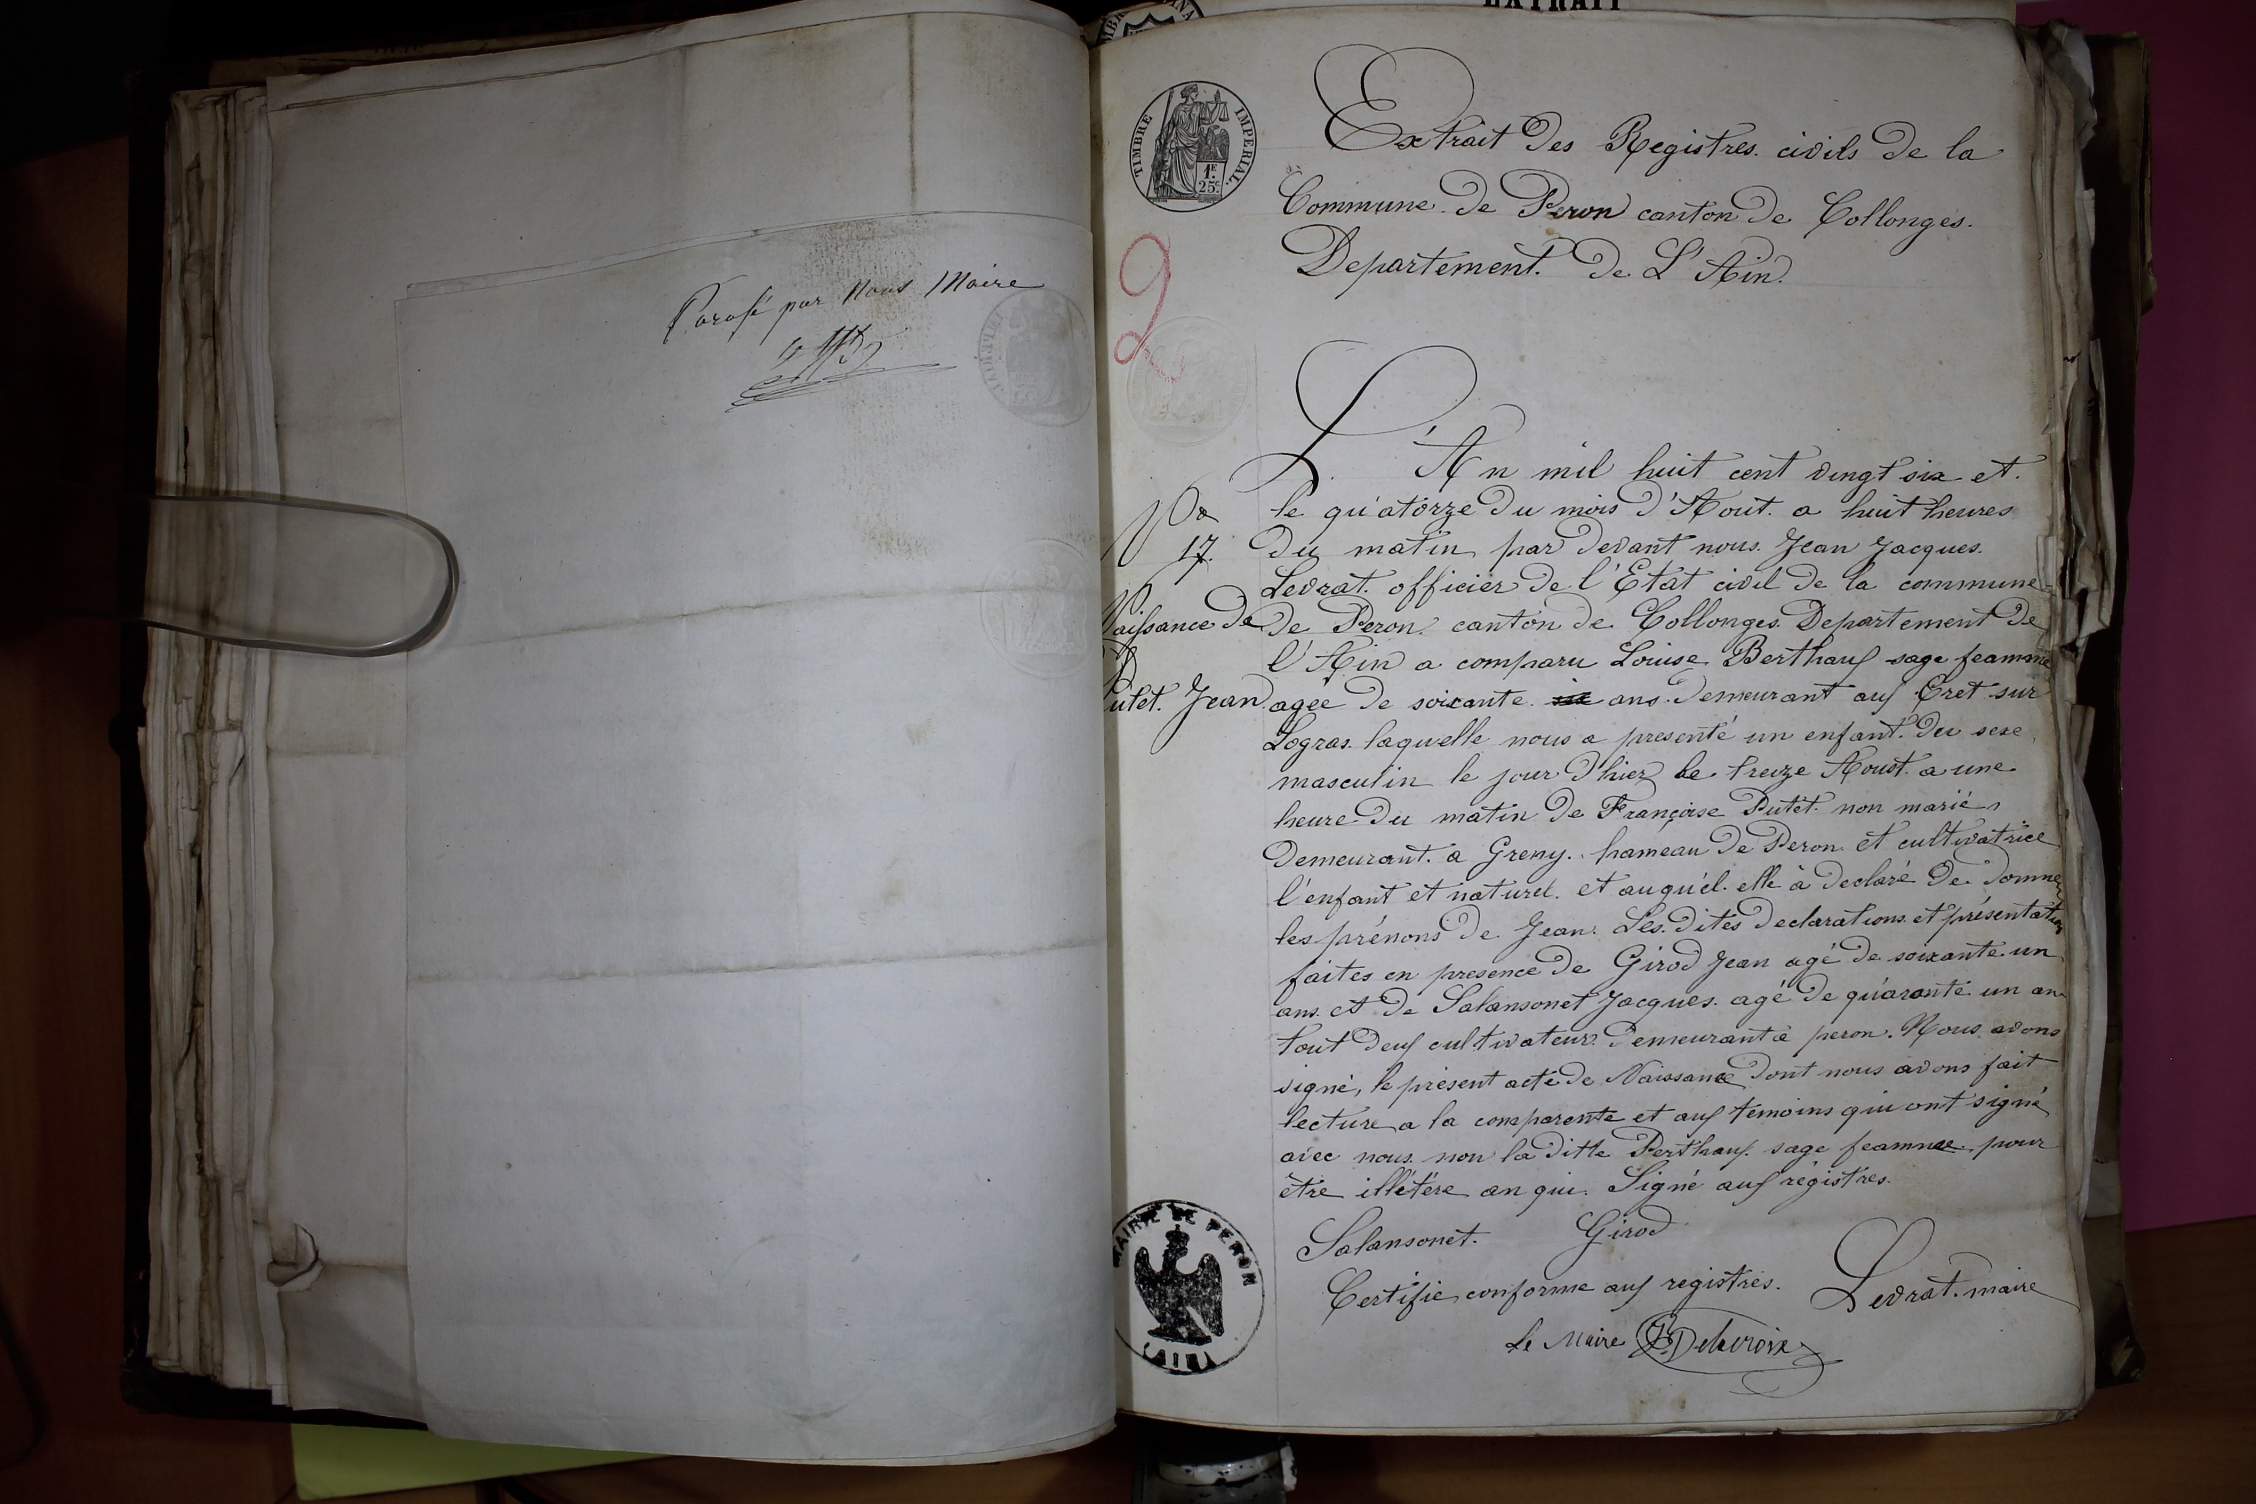 EXTRAIT
Parafé par Nous Maire
TIMBRE IMPERIAL.
1F.
25c.
2
Extrait Des Registres civils De la
Commune De Peron canton De Collonges.
Departement. De L'Ain.
L'An mil huit cent vingt six et.
le qu'atorze Du mois D'Aout. a huit heures
Du matin par Devant nous. Jean Jacques.
Levrat. officier De l'Etat civil De la commune
De Peron. canton De Collonges. Departement De
l'Ain a comparu Louise Berthaux sage feamme
agée De soixante six ans. Demeurant aux Cret sur
Logras. laquelle nous a presenté un enfant. Du sexe
masculin le jour D'hier le treize Aoust. a une
heure Du matin De Françoise Putet. non marié,
Demeurant. a Greny. hameau De Peron et cultivatrice
l'enfant et naturel. et auqu'el. elle à Declaré De Donner
les prénons De Jean. Les. Dites Declarations et présentation
faites en presence De Girod Jean agé De soixante un
ans. et De Salansonet Jacques. agé De qu'arante un an
tout Deux cultivateur. Demeurant a peron. Nous avons
signé, le présent acte De Naissance Dont nous avons fait
lecture a la comparante et aux témoins qui ont signé
avec nous. non la Ditte Perthaux. sage feamme pour
être illétére an qui. Signé aux régistres.
Salansonet. Girod
Levrat. maire
Certifie conforme aux registres.
Le Maire Delacroix
No
17.
Naissance De
Putet. Jean
MAIRIE DE PERON
(AIN)